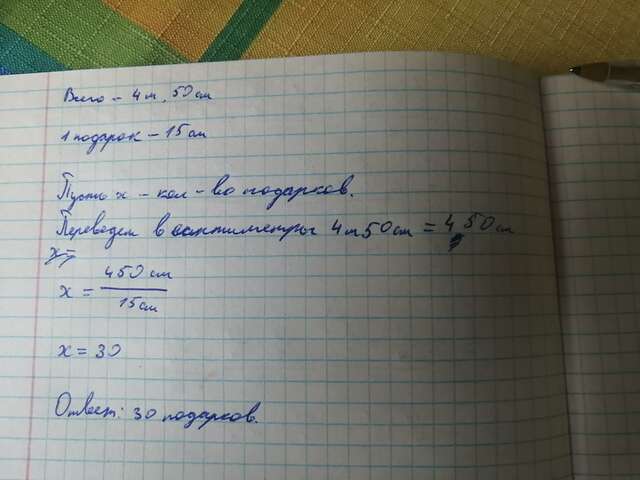 Всего - 4 м, 50 см
1 подарок - 15 см
Пусть x - кол-во подарков.
Переведем в сантиметры 4 м 50 см = 450 см
x =
x = 450 см / 15 см
x = 30
Ответ: 30 подарков.